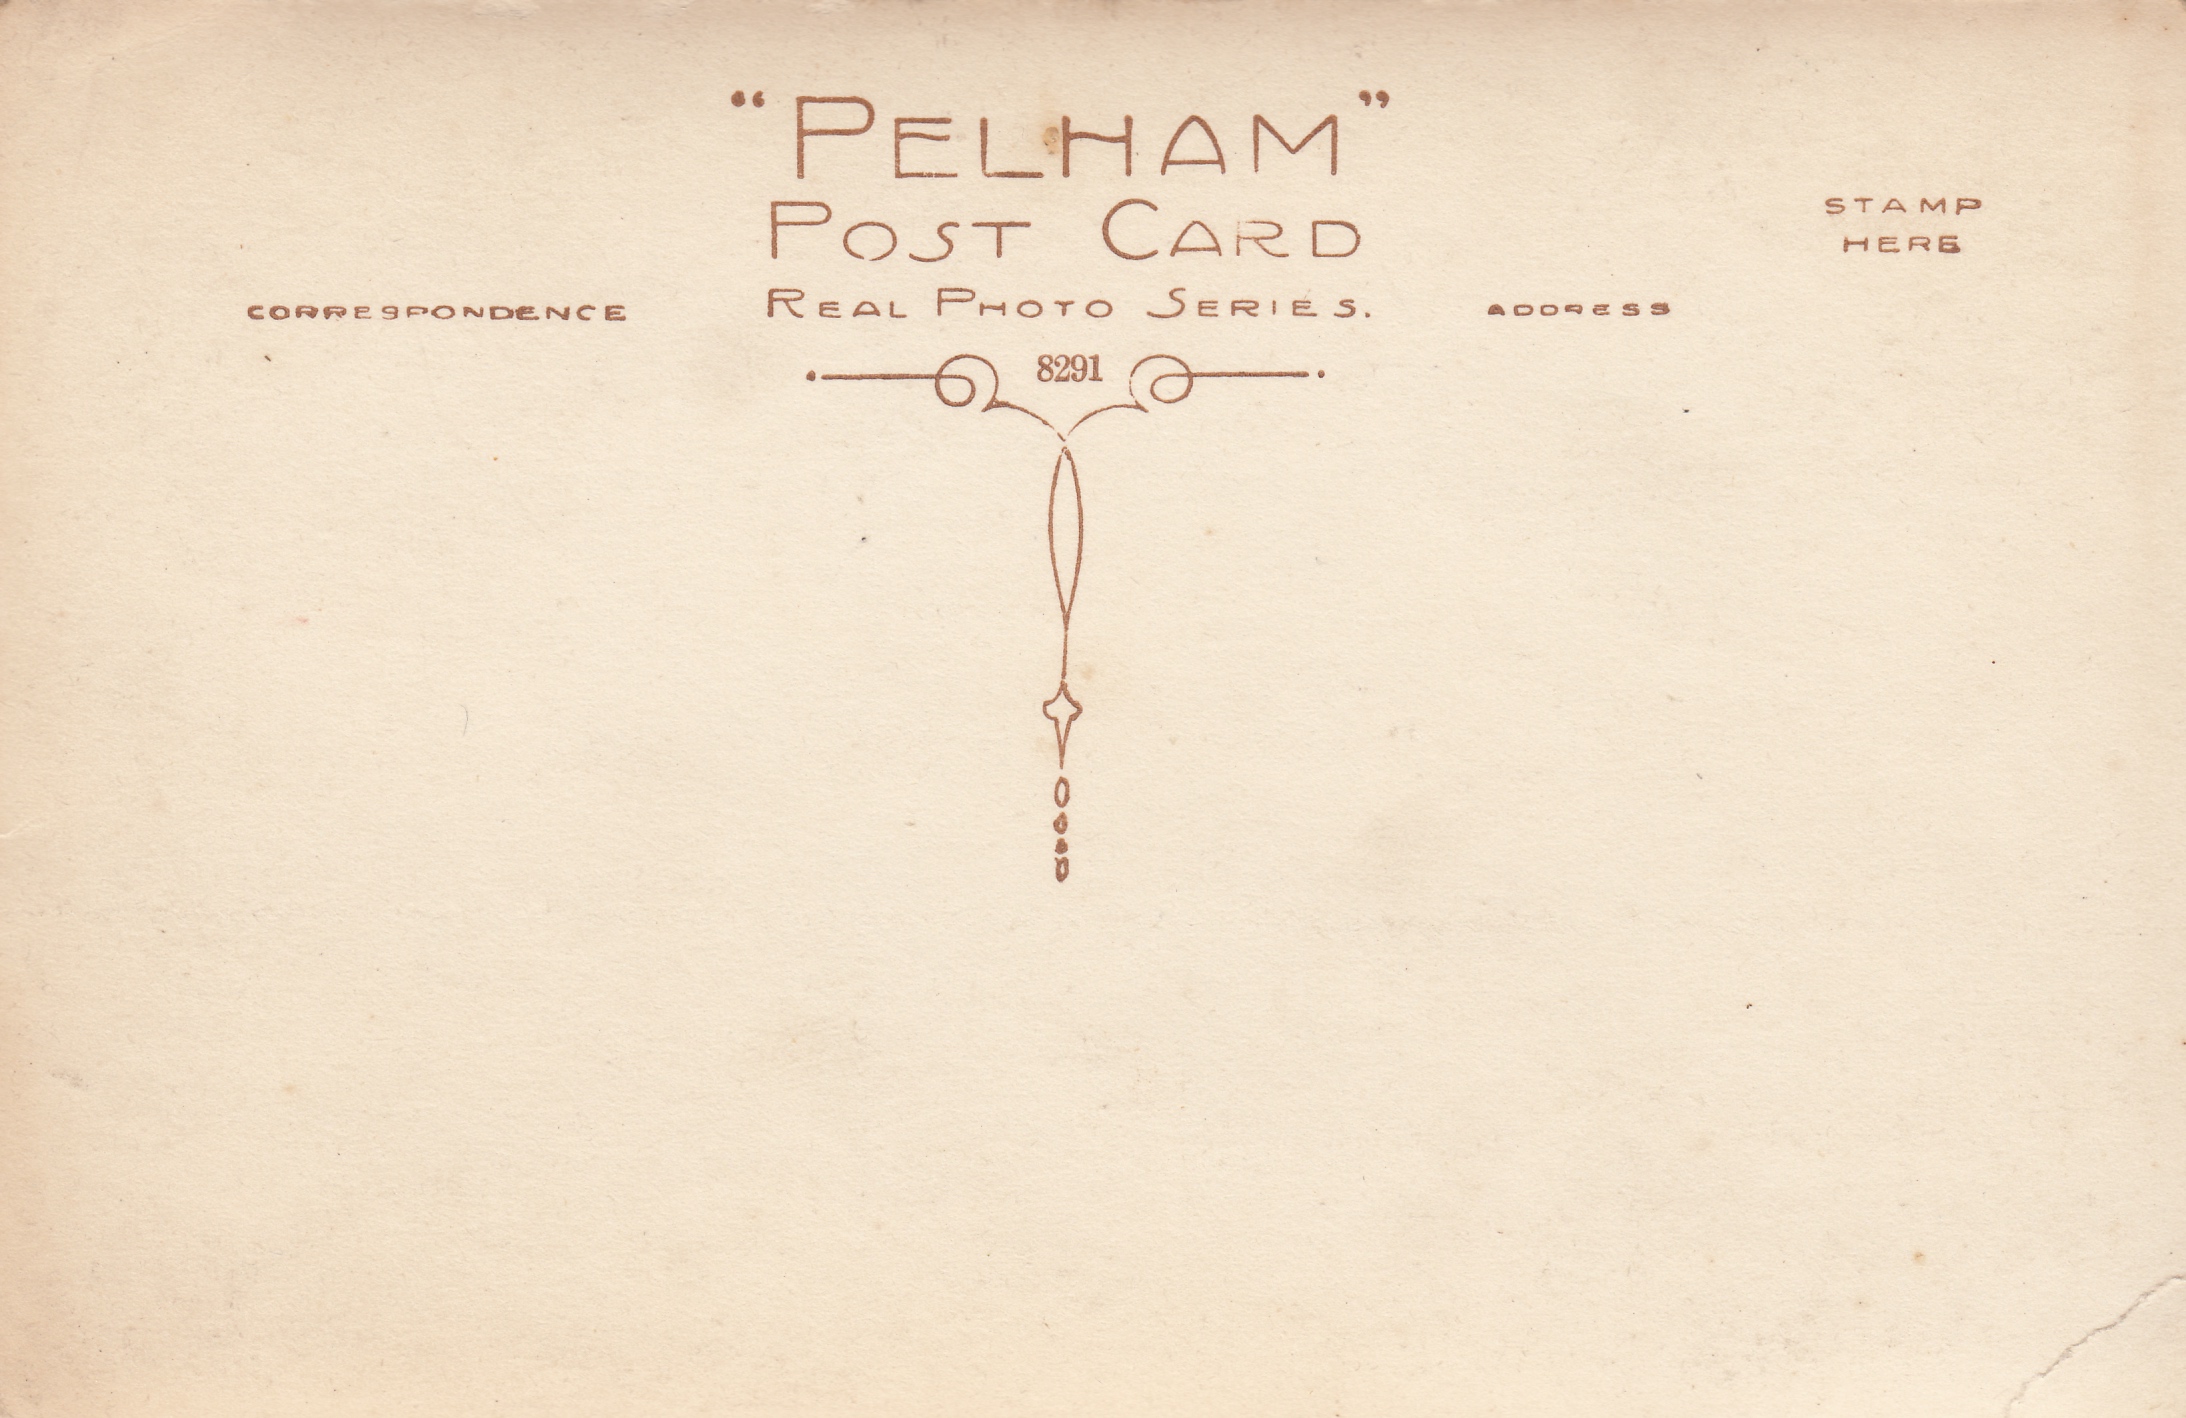 “PELHAM”
POST CARD
STAMP
HERE
CORRESPONDENCE
REAL PHOTO SERIES.
ADDRESS
8291